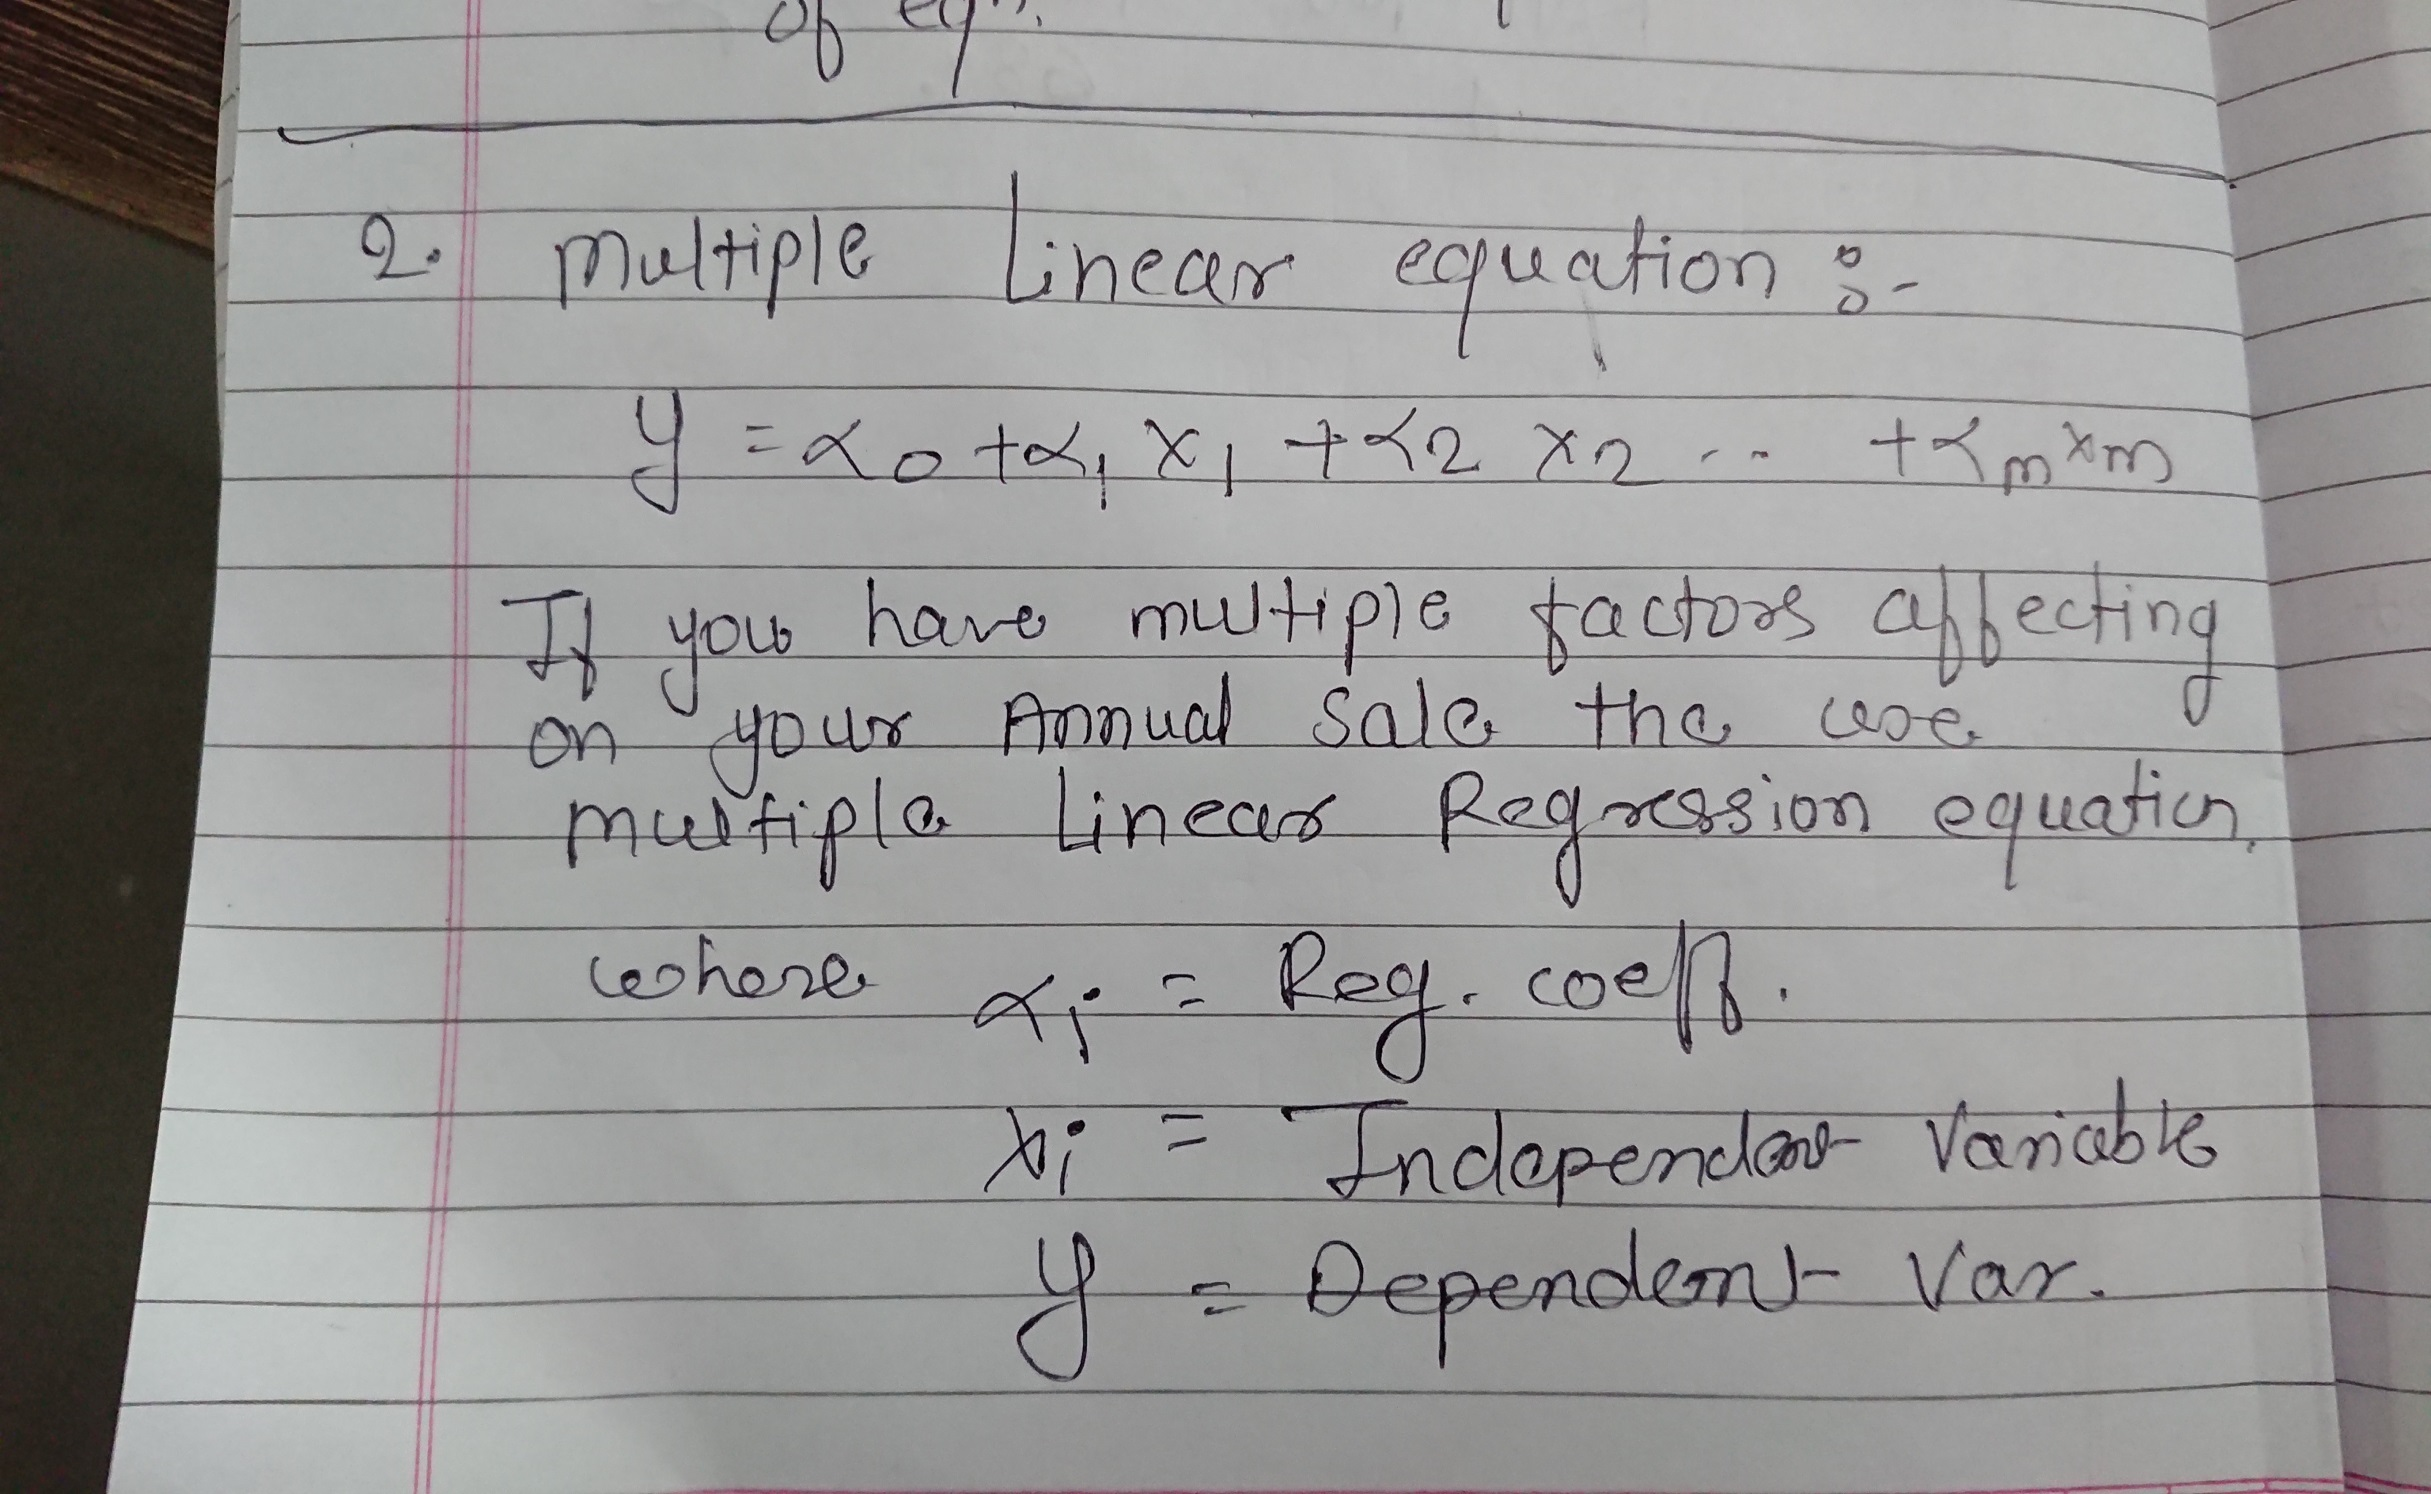 of eqn.
2. Multiple Linear equation :-
y = α0 + α1 x1 + α2 x2 .. + αm xm
If you have multiple factors affecting
on your Annual Sale the use
multiple Linear Regression equation.
where αi = Reg. coeff.
xi = Independent Variable
y = Dependent Var.